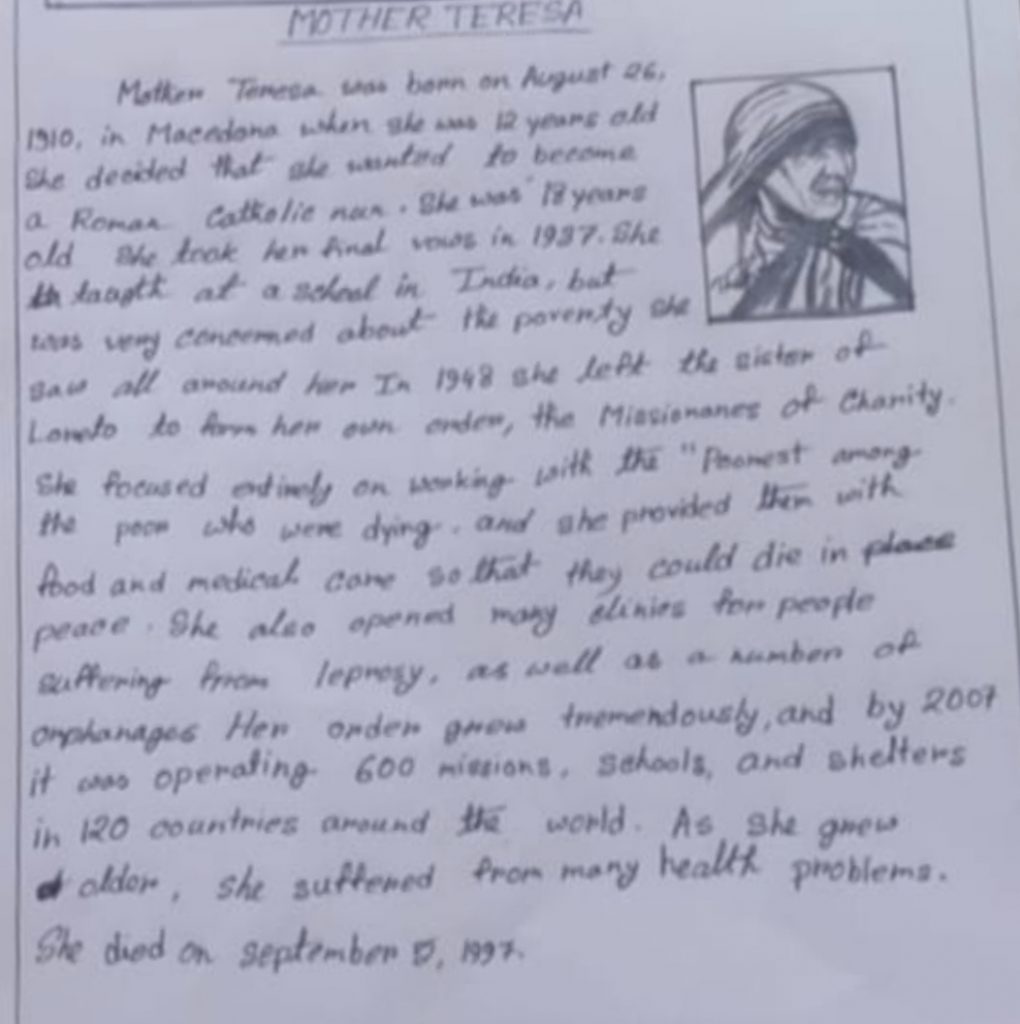 MOTHER TERESA
Mother Teresa was born on August 26,
1910, in Macedona when she was 12 years old
She decided that she wanted to become
a Roman Catholic nun. She was 18 years
old She took her final vows in 1937. She
taugth at a school in India, but
was very concerned about the poverty she
saw all around her In 1948 she left the sister of
Loreto to form her own order, the Missionaries of Charity.
She focused entirely on working with the "Poorest among
the poor who were dying. and she provided them with
food and medical care so that they could die in place
peace. She also opened many clinics for people
suffering from leprosy, as well as a number of
orphanages Her order grew tremendously, and by 2007
it was operating 600 missions, schools, and shelters
in 120 countries around the world. As she grew
older, she suffered from many health problems.
She died on September 5, 1997.